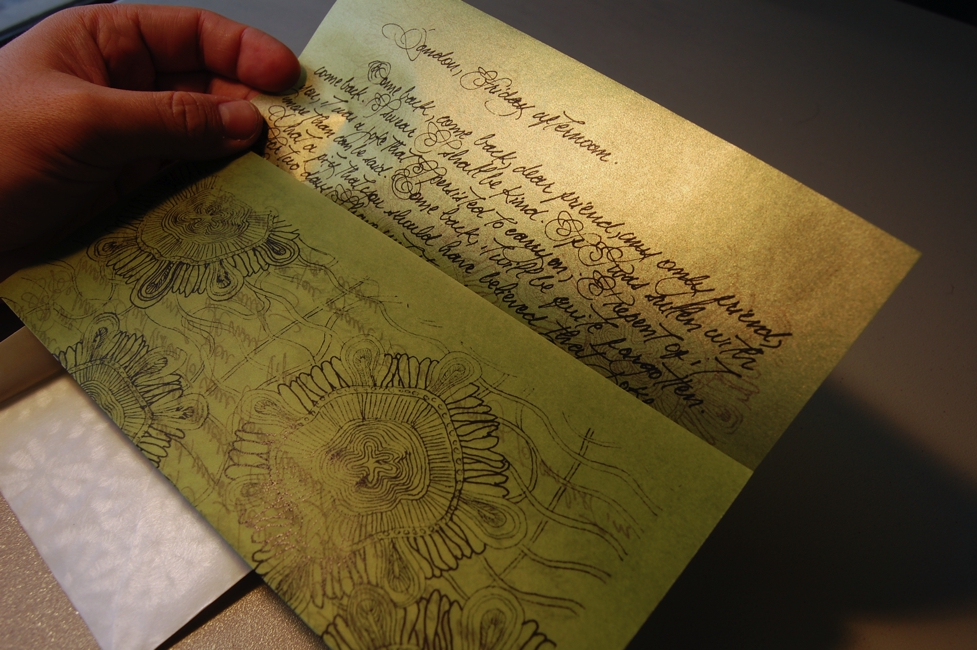 London, Friday afternoon.
Come back, come back, dear friend, my only friend,
come back. I swear I shall be kind. If I was sullen with
it was a joke that I persisted to carry on, I repent of it
more than can be said. Come back, it will be quite forgotten.
What a grief that you should have believed that
two days